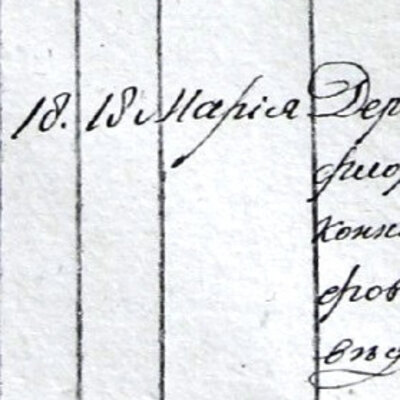 18. 18 Марія Дер
фло
конн
еров